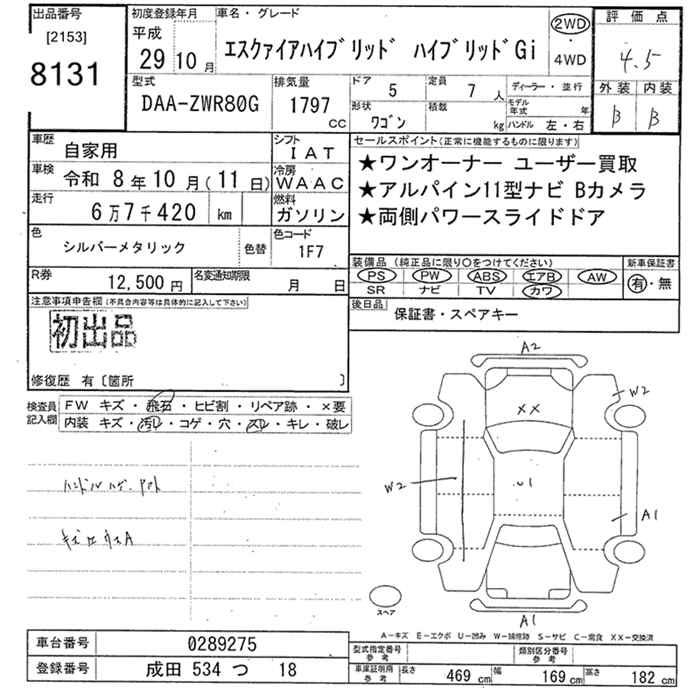 出品番号 初度登録年月 車名・グレード 評価点
[2153] 平成 2WD
8131 29 10月 エスクァイアハイブリッド ハイブリッドGi ・ 4WD 4.5
型式 排気量 ドア 5 定員 7人 ディーラー・並行 外装 内装
DAA-ZWR80G 1797 cc 形状 ワゴン 積載 kg モデル年式 年 ハンドル 左・右 B B
車歴 自家用 シフト IAT セールスポイント(正常に機能するものに限ります)
車検 令和 8年10月(11日) 冷房 WAAC ★ワンオーナー ユーザー買取
走行 6万7千420 km 燃料 ガソリン ★アルパイン11型ナビ Bカメラ
★両側パワースライドドア
色 シルバーメタリック 色替 色コード 1F7
装備品(純正品に限り○をつけてください) 新車保証書
R券 12,500円 名変通知期限 月 日 PS PW ABS エアB AW 有・無
SR ナビ TV カワ
注意事項申告欄(不具合内容等は具体的に記入して下さい) 後日品 保証書・スペアキー
初出品
修復歴 有〔箇所 〕
検査員記入欄 FW キズ・飛石・ヒビ割・リペア跡・×要
内装 キズ・汚レ・コゲ・穴・スレ・キレ・破レ
A2
W2
XX
W2
U1
A1
A1
スペア
A-キズ E-エクボ U-凹み W-補修跡 S-サビ C-腐食 XX-交換済
車台番号 0289275 型式指定番号 参考 類別区分番号 参考
登録番号 成田 534 つ 18 車庫証明用参考 長さ 469 cm 幅 169 cm 高さ 182 cm